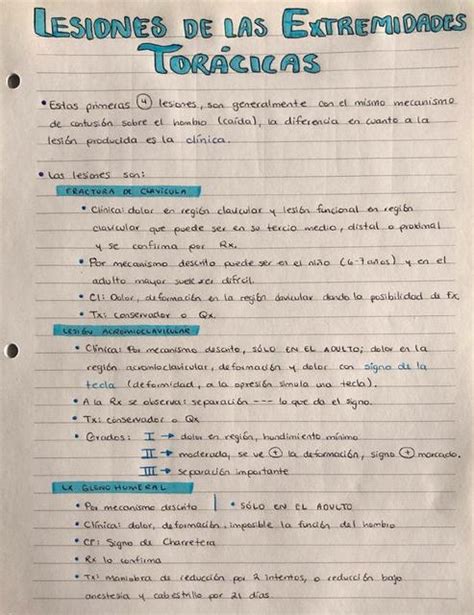 LESIONES DE LAS EXTREMIDADES
TORÁCICAS
• Estas primeras 4 lesiones, son generalmente con el mismo mecanismo
de contusión sobre el hombro (caída), la diferencia en cuanto a la
lesión producida es la clínica.
• Las lesiones son:
FRACTURA DE CLAVÍCULA
• Clínica: dolor en región clavicular y lesión funcional en región
clavicular que puede ser en su tercio medio, distal o proximal
y se confirma por Rx.
• Por mecanismo descrito puede ser en el niño (6-7 años) y en el
adulto mayor suele ser difícil.
• Cl: Dolor, deformación en la región clavicular dando la posibilidad de Fx.
• Tx: conservador o Qx.
LESIÓN ACROMIOCLAVICULAR
• Clínica: Por mecanismo descrito, SÓLO EN EL ADULTO; dolor en la
región acromioclavicular, deformación y dolor con signo de la
tecla (deformidad, a la opresión simula una tecla).
• A la Rx se observa: separación --- lo que da el signo.
• Tx: conservador o Qx
• Grados: I → dolor en región, hundimiento mínimo
II → moderada, se ve + la deformación, signo + marcado.
III → separación importante
LX GLENOHUMERAL
• Por mecanismo descrito | • SÓLO EN EL ADULTO
• Clínica: dolor, deformación, imposible la función del hombro
• CP: Signo de Charretera
• Rx lo confirma
• Tx: maniobra de reducción por 2 intentos, o reducción bajo
anestesia y cabestrillo por 21 días